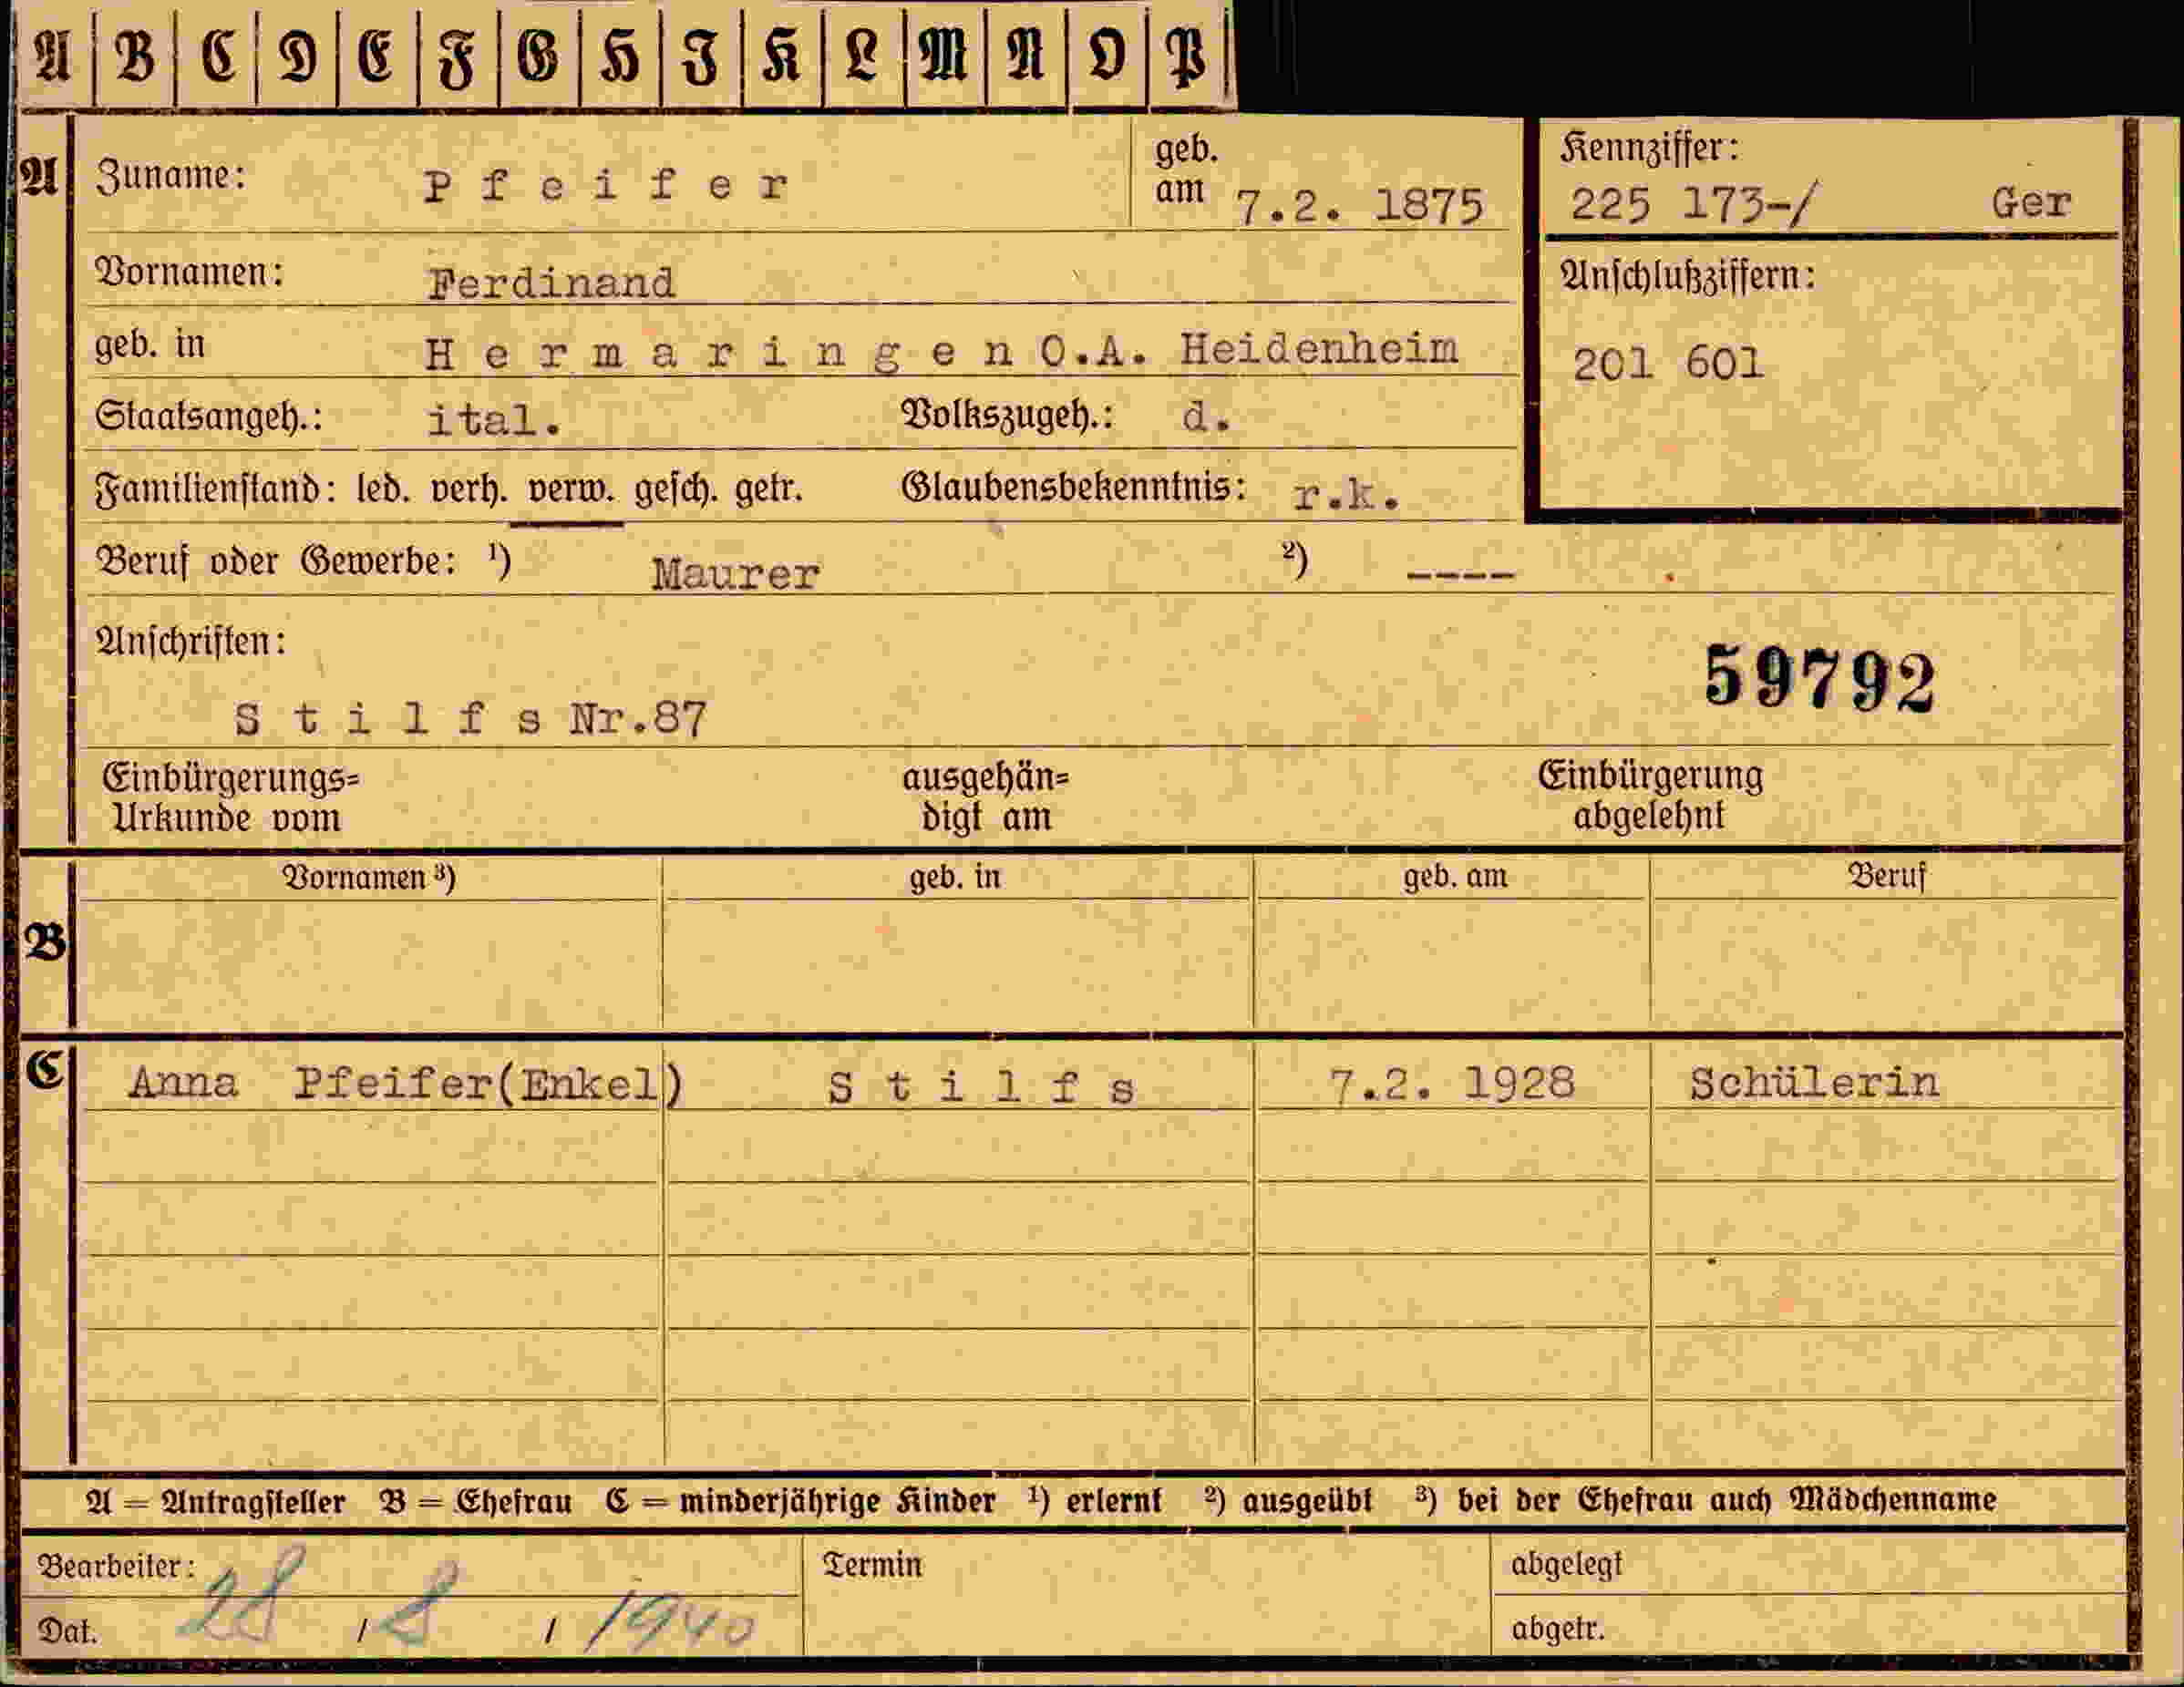 A B C D E F G H I K L M N O P
A Zuname: Pfeifer geb. am 7.2. 1875
Kennziffer:
225 173-/ Ger
Vornamen: Ferdinand
Anschlußziffern:
geb. in Hermaringen O.A. Heidenheim
201 601
Staatsangeh.: ital. Volkszugeh.: d.
Familienstand: led. verh. verw. gesch. getr. Glaubensbekenntnis: r.k.
Beruf oder Gewerbe: ¹) Maurer ²) ----
Anschriften:
59792
Stilfs Nr.87
Einbürgerungs= ausgehän= Einbürgerung
Urkunde vom digt am abgelehnt
Vornamen ³) geb. in geb. am Beruf
B
C Anna Pfeifer(Enkel) Stilfs 7.2. 1928 Schülerin
A = Antragsteller B = Ehefrau C = minderjährige Kinder ¹) erlernt ²) ausgeübt ³) bei der Ehefrau auch Mädchenname
Bearbeiter: Termin abgelegt
Dat. 28 / 8 / 1940 abgetr.